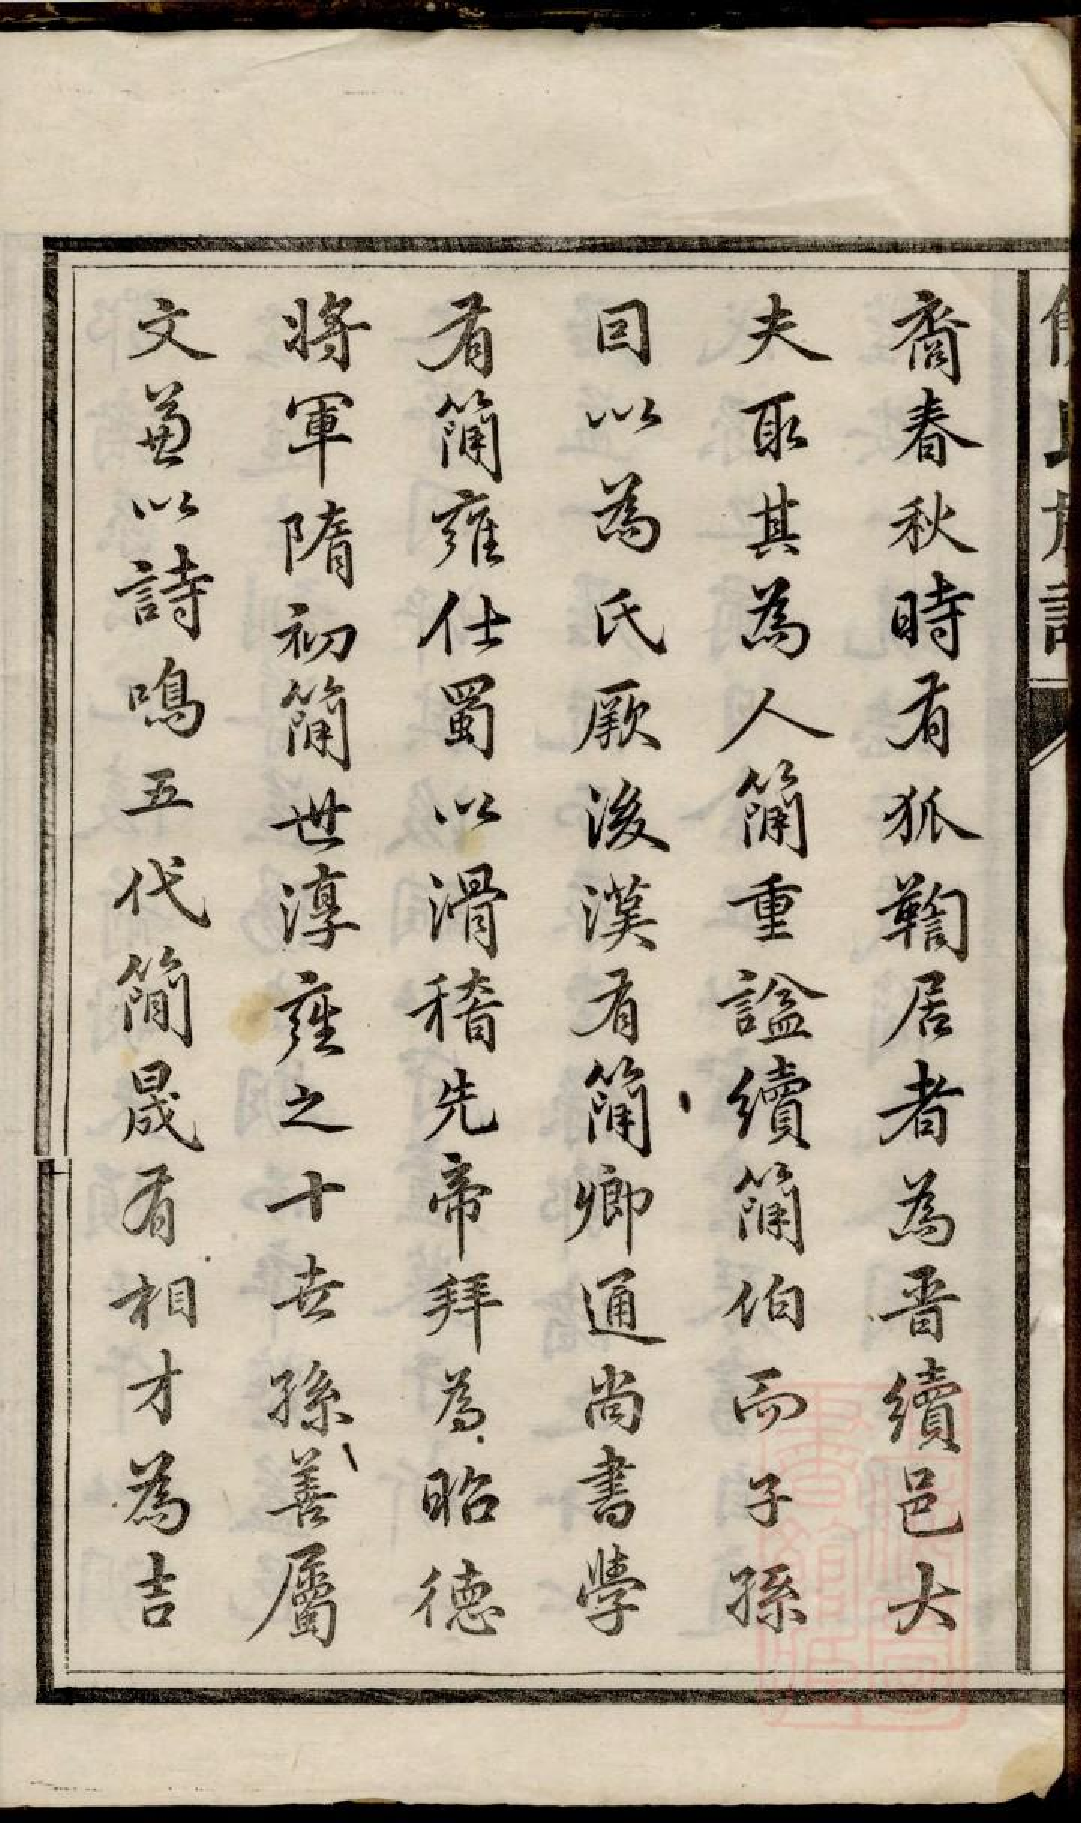 裔春秋時有狐鞫居者為晋續邑大
夫取其為人簡重諡續簡伯而子孫
因以為氏厥後漢有簡卿通尚書學
有簡雍仕蜀以滑稽先帝拜為昭德
將軍隋初簡世淳雍之十世孫善屬
文兼以詩鳴五代簡晟有相才為吉